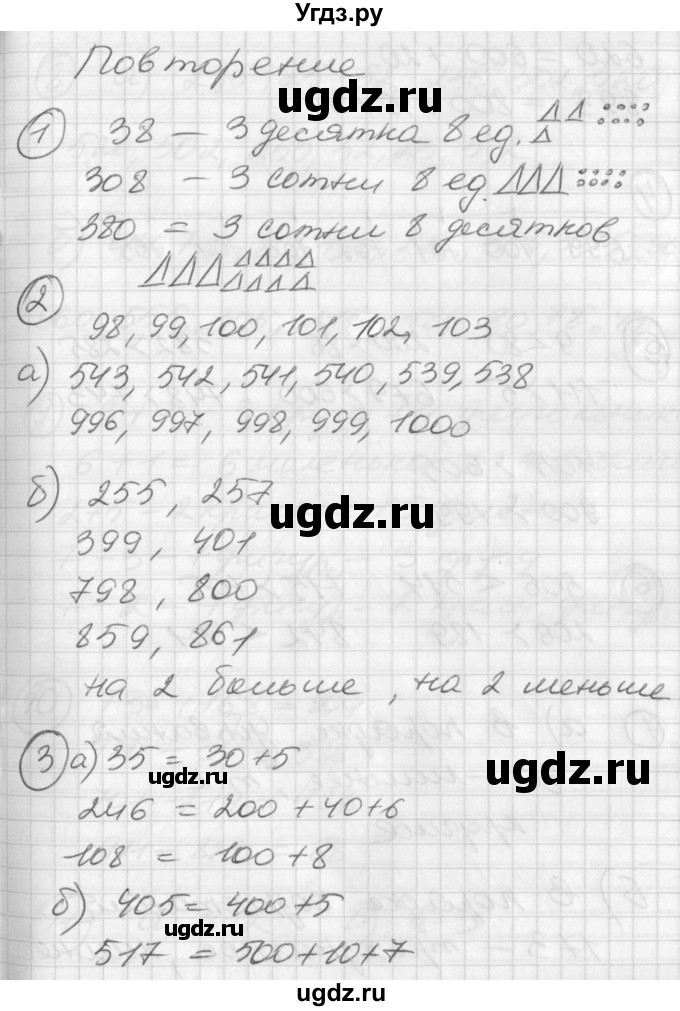 Угдз.ру
Повторение
ugdz.ru
1 38 – 3 десятка 8 ед.
308 – 3 сотни 8 ед.
380 = 3 сотни 8 десятков
2
98, 99, 100, 101, 102, 103
а) 543, 542, 541, 540, 539, 538
996, 997, 998, 999, 1000
б) 255, 257
ugdz.ru
399, 401
798, 800
859, 861
на 2 больше, на 2 меньше
3 а) 35 = 30+5
ugdz.ru
ugdz.ru
246 = 200+40+6
108 = 100+8
б) 405 = 400+5
ugdz.ru
517 = 500+10+7
ugdz.ru